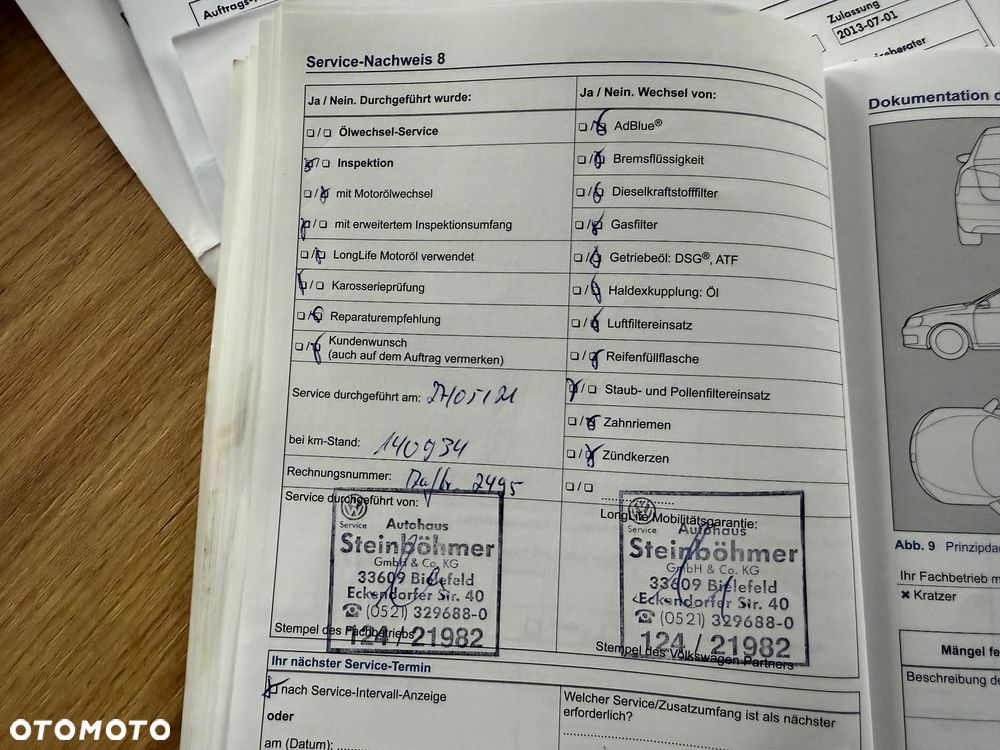 Auftrags-
Zulassung
2013-07-01
Service-Nachweis 8
Ja / Nein. Durchgeführt wurde:
Ja / Nein. Wechsel von:
Ölwechsel-Service
AdBlue®
Inspektion
Bremsflüssigkeit
mit Motorölwechsel
Dieselkraftstofffilter
mit erweitertem Inspektionsumfang
Gasfilter
LongLife Motoröl verwendet
Getriebeöl: DSG®, ATF
Karosserieprüfung
Haldexkupplung: Öl
Reparaturempfehlung
Luftfiltereinsatz
Kundenwunsch
(auch auf dem Auftrag vermerken)
Reifenfüllflasche
Staub- und Pollenfiltereinsatz
Service durchgeführt am:
Zahnriemen
bei km-Stand: 140934
Zündkerzen
Rechnungsnummer: 2495
Service durchgeführt von:
LongLife Mobilitätsgarantie:
Service
Autohaus
Steinböhmer
GmbH & Co. KG
33609 Bielefeld
Eckendorfer Str. 40
☎ (0521) 329688-0
124 / 21982
Stempel des Fachbetriebs
Service
Autohaus
Steinböhmer
GmbH & Co. KG
33609 Bielefeld
Eckendorfer Str. 40
☎ (0521) 329688-0
124 / 21982
Stempel des Volkswagen Partners
Ihr nächster Service-Termin
nach Service-Intervall-Anzeige
oder
am (Datum):
Welcher Service/Zusatzumfang ist als nächster
erforderlich?
Dokumentation d
Abb. 9 Prinzipda
Ihr Fachbetrieb m
✖ Kratzer
Mängel fe
Beschreibung de
OTOMOTO